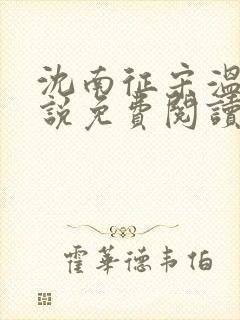 沈南征宋溫
說免費閱讀
霍華德韦伯